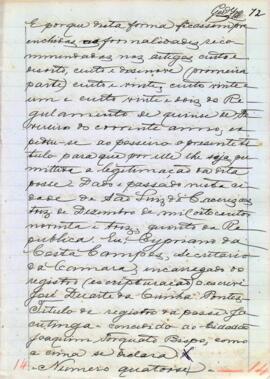 72
E porque desta forma ficassem pre-
enchidas as formalidades reco-
mmendadas nos artigos cento e
desoito, cento e desenove (primeira
parte) cento e vinte, cento vinte e
um e cento vinte e dois do Re-
gulamento de quinze de Fe-
vereiro do corrente anno, ex-
pediu-se ao posseiro o presente ti-
tulo para que por elle lhe seja per-
mittida a legitimação da dita
posse. Dado e passado nesta ci-
dade de São Luiz de Caceres, aos
tres de Dezembro de mil oito centos
noventa e tres, quinto da Re-
publica. Eu, Cypriano da
Costa Campos, Secretario
da Camara, encarregado do
registro (e escripturação) o escrevi
José Duarte da Cunha Pontes.
Titulo de registro da posse Ja-
cutinga - concedido ao Cidadão
Joaquim Torquato Bispo, como
a cima se declara
Numero quatorse
14 14